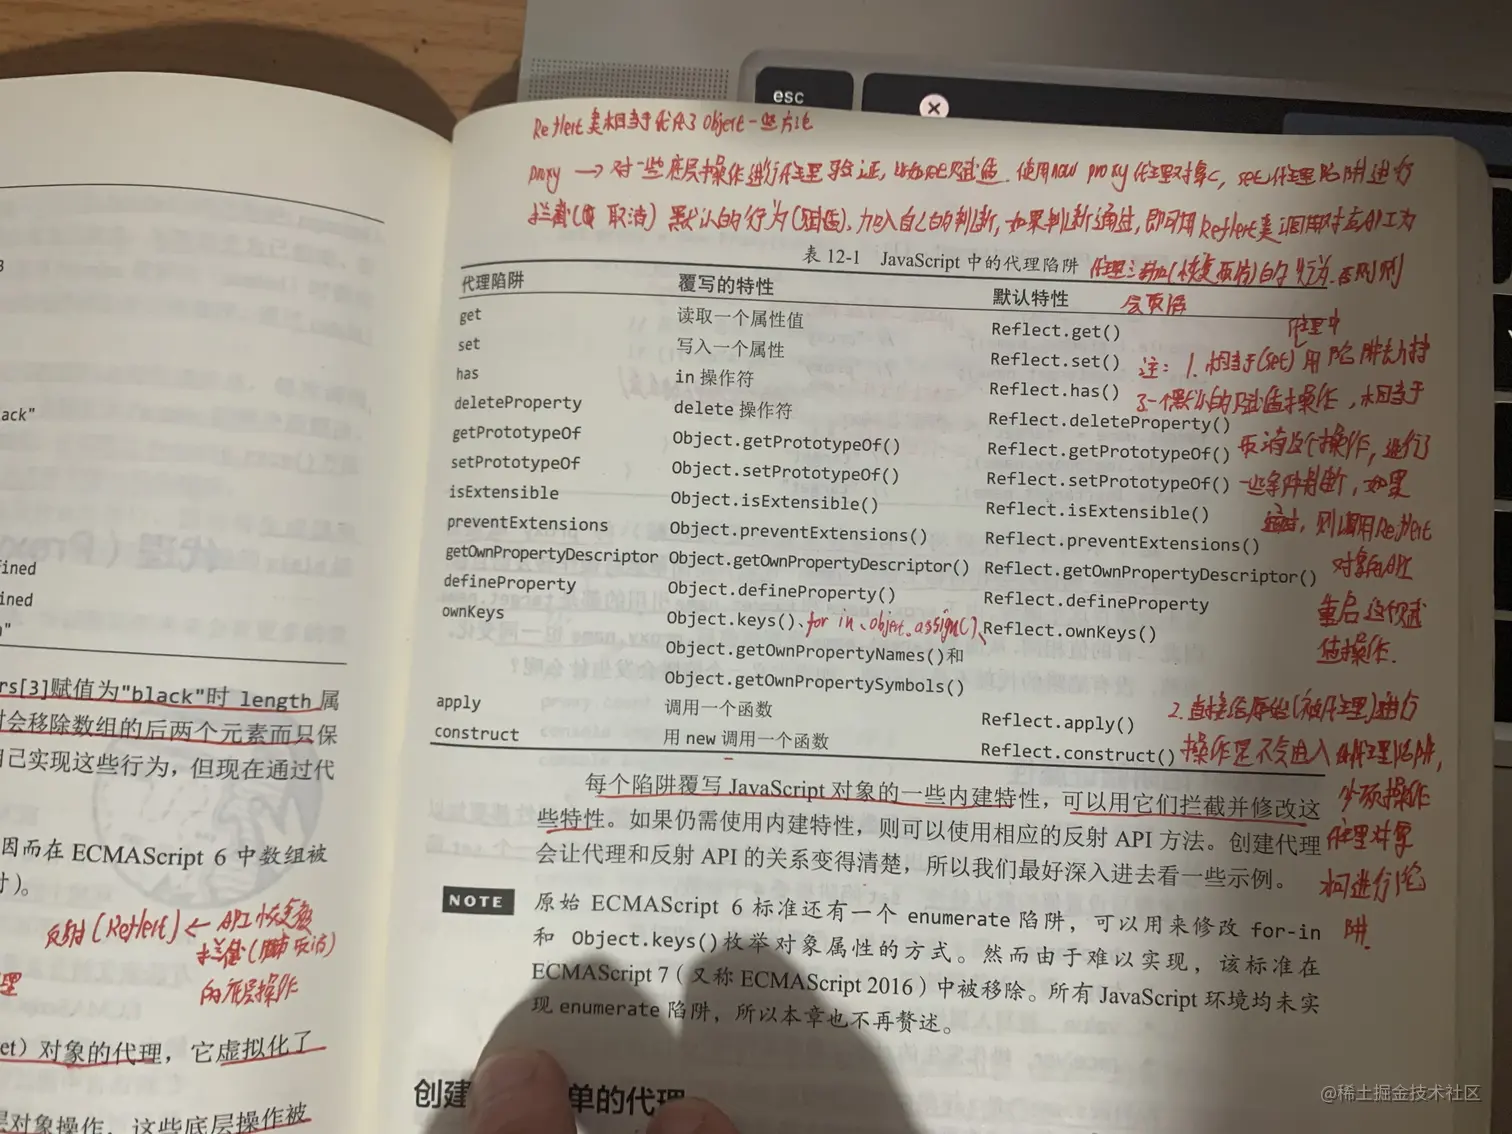 esc
Reflect类相当于代办了Object一些方法
proxy → 对一些底层操作进行代理验证,比如赋值.使用new proxy代理对象,set代理陷阱进行
拦截(取消)默认的行为(赋值),加入自己的判断,如果判断通过,即可用Reflect类调用对应API工为
表 12-1 JavaScript 中的代理陷阱
的行为.否则则
会
代理陷阱 覆写的特性 默认特性
get 读取一个属性值 Reflect.get()
set 写入一个属性 Reflect.set()
has in 操作符 Reflect.has()
deleteProperty delete 操作符 Reflect.deleteProperty()
getPrototypeOf Object.getPrototypeOf() Reflect.getPrototypeOf()
setPrototypeOf Object.setPrototypeOf() Reflect.setPrototypeOf()
isExtensible Object.isExtensible() Reflect.isExtensible()
preventExtensions Object.preventExtensions() Reflect.preventExtensions()
getOwnPropertyDescriptor Object.getOwnPropertyDescriptor() Reflect.getOwnPropertyDescriptor()
defineProperty Object.defineProperty() Reflect.defineProperty
ownKeys Object.keys()、for in、object.assign()、 Reflect.ownKeys()
Object.getOwnPropertyNames()和
Object.getOwnPropertySymbols()
apply 调用一个函数 Reflect.apply()
construct 用 new 调用一个函数 Reflect.construct()
代理中
注: 1. 相当于(set)用陷阱去
了一个默认的赋值操作,相当于
取消这个操作,进行了
一些条件判断,如果
通过,则调用Reflect
对象的API
重启这个赋
值操作.
2. 直接给原始(被代理)进行
操作是不会进入代理陷阱,
必须操作
代理对象
才可进行陷
阱.
每个陷阱覆写 JavaScript 对象的一些内建特性,可以用它们拦截并修改这
些特性。如果仍需使用内建特性,则可以使用相应的反射 API 方法。创建代理
会让代理和反射 API 的关系变得清楚,所以我们最好深入进去看一些示例。
NOTE 原始 ECMAScript 6 标准还有一个 enumerate 陷阱,可以用来修改 for-in
和 Object.keys()枚举对象属性的方式。然而由于难以实现,该标准在
ECMAScript 7(又称 ECMAScript 2016)中被移除。所有 JavaScript 环境均未实
现 enumerate 陷阱,所以本章也不再赘述。
创建 单的代理
3
ack"
ined
ined
"
rs[3]赋值为"black"时 length 属
会移除数组的后两个元素而只保
己实现这些行为,但现在通过代
因而在 ECMAScript 6 中数组被
)。
反射(Reflect) ← API 恢复被
拦截(取消)
的底层操作
理
et)对象的代理,它虚拟化了
层对象操作,这些底层操作被
@稀土掘金技术社区